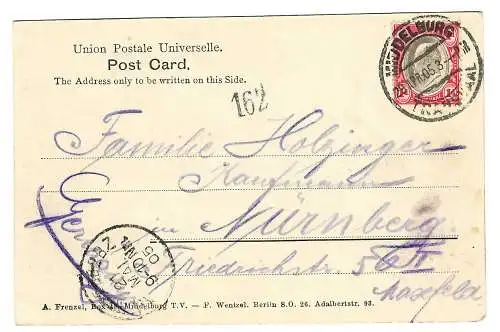 Union Postale Universelle.
Post Card.
The Address only to be written on this Side.
162
MIDDELBURG
05
Familie Holzinger
Kaufmann
in Nürnberg
Friedrichstr. 56 II
Maxfeld
Germany
21
MAI
05
A. Frenzel, Box Middelburg T.V. — F. Wentzel. Berlin S.O. 26. Adalbertstr. 93.